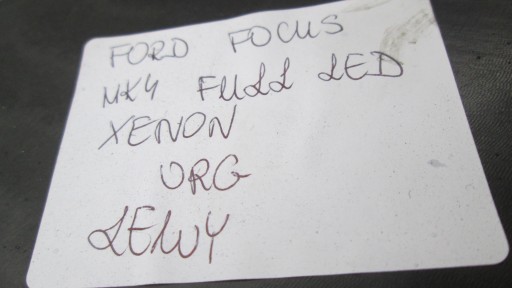 FORD FOCUS
MK4 FULL LED
XENON
ORG
LEWY